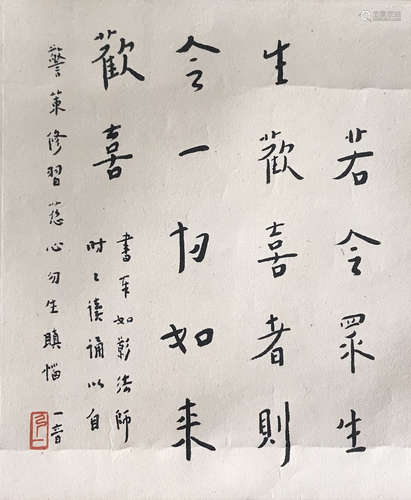 若令眾生
生歡喜者則
令一切如来
歡喜
書奉如影法師
時々讀誦以自
警策修習慈心勿生瞋惱 一音